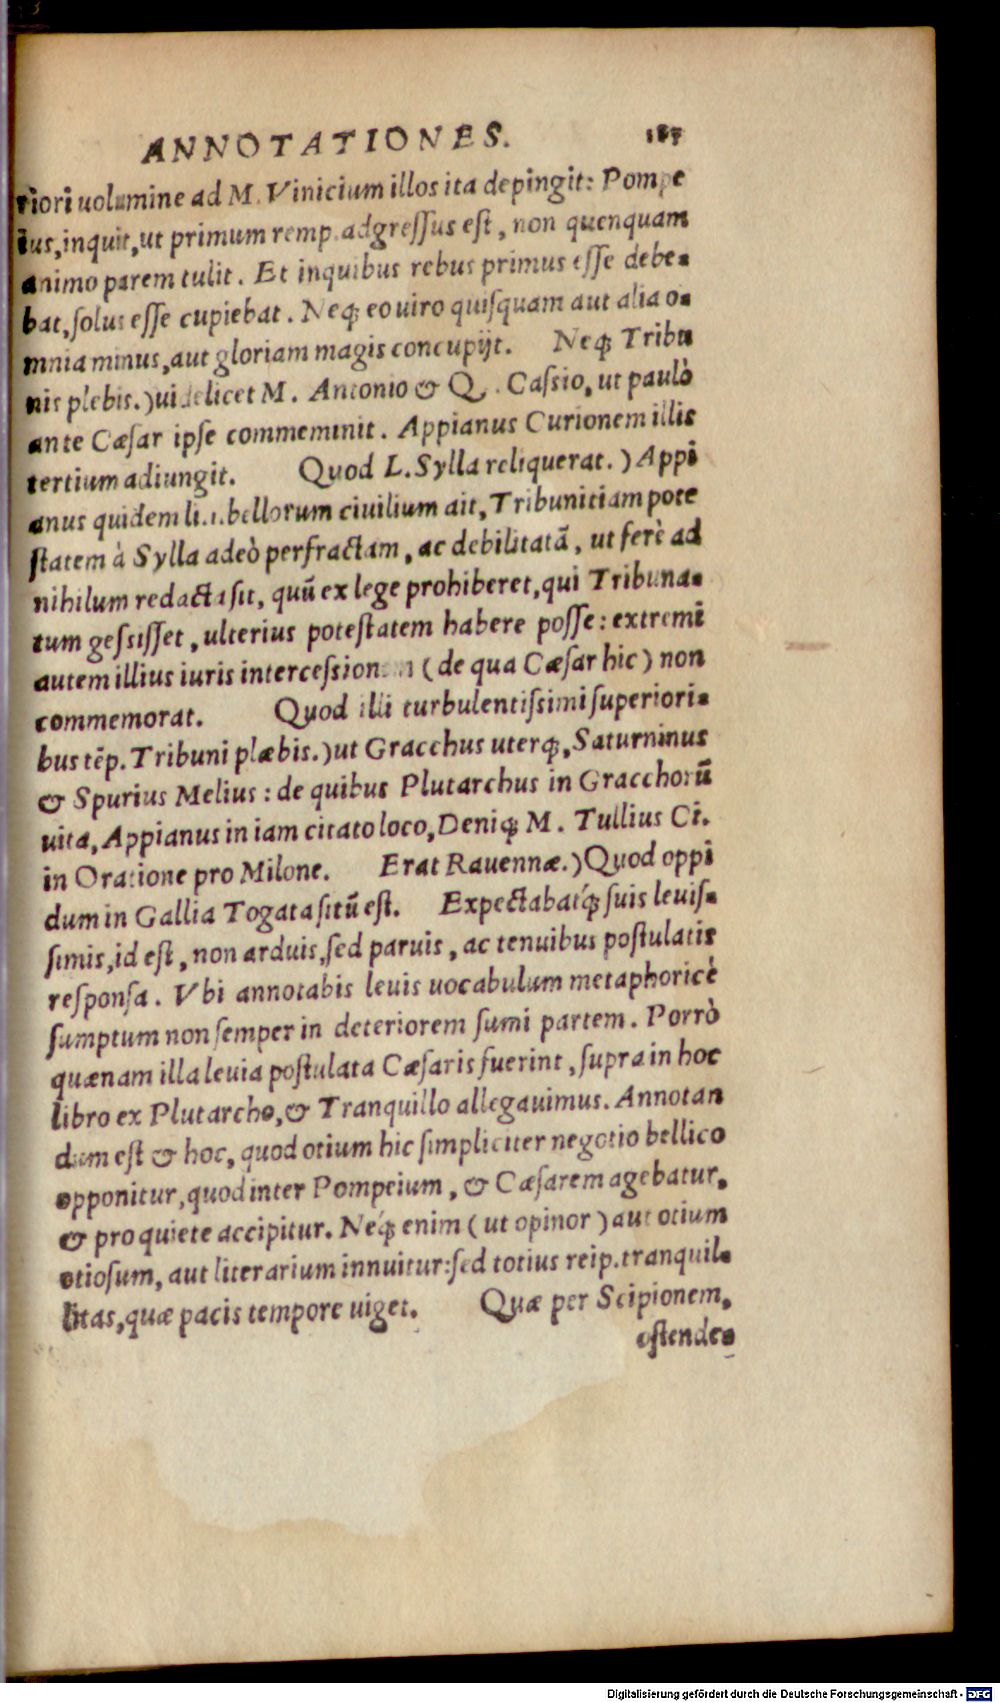 ANNOTATIONES. 187
riori uolumine ad M. Vinicium illos ita depingit: Pompe
ius, inquit, ut primum remp. adgreſſus eſt, non quenquam
animo parem tulit. Et inquibus rebus primus eſſe debe-
bat, ſolus eſſe cupiebat. Neqꝫ eo uiro quiſquam aut alia o-
mnia minus, aut gloriam magis concupijt. Neqꝫ Tribu
nis plebis.) uidelicet M. Antonio & Q. Caſsio, ut paulò
ante Cæſar ipſe commeminit. Appianus Curionem illis
tertium adiungit. Quod L. Sylla reliquerat.) Appi
anus quidem li.1. bellorum ciuilium ait, Tribunitiam pote
ſtatem à Sylla adeò perfractam, ac debilitatā, ut ferè ad
nihilum redacta ſit, quū ex lege prohiberet, qui Tribuna-
tum geſsiſſet, ulterius poteſtatem habere poſſe: extremi
autem illius iuris interceſsionem (de qua Cæſar hic) non
commemorat. Quod illi turbulentiſsimi ſuperiori-
bus tēp. Tribuni plæbis.) ut Gracchus uterqꝫ, Saturninus
& Spurius Melius: de quibus Plutarchus in Gracchorū
uita, Appianus in iam citato loco, Deniqꝫ M. Tullius Ci.
in Oratione pro Milone. Erat Rauennæ.) Quod oppi
dum in Gallia Togata ſitū eſt. Expectabatq́ꝫ ſuis leuiſ-
ſimis, id eſt, non arduis, ſed paruis, ac tenuibus poſtulatis
reſponſa. Vbi annotabis leuis uocabulum metaphoricè
ſumptum non ſemper in deteriorem ſumi partem. Porrò
quænam illa leuia poſtulata Cæſaris fuerint, ſupra in hoc
libro ex Plutarcho, & Tranquillo allegauimus. Annotan
dum eſt & hoc, quod otium hic ſimpliciter negotio bellico
opponitur, quod inter Pompeium, & Cæſarem agebatur,
& pro quiete accipitur. Neq́ꝫ enim (ut opinor) aut otium
otioſum, aut literarium innuitur: ſed totius reip. tranquil-
litas, quæ pacis tempore uiget. Quæ per Scipionem,
oſtende-
Digitalisierung gefördert durch die Deutsche Forschungsgemeinschaft - DFG